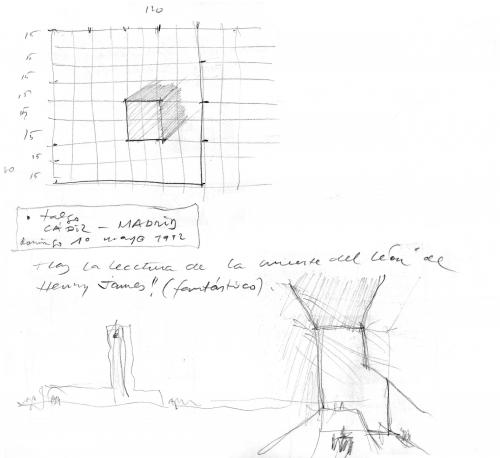 120
15
15
15
15
15
15
15
15
• talgo
CÁDIZ – MADRID
domingo 10 mayo 1992
Tras la lectura de la muerte del león" de
Henry James!! (fantástico).